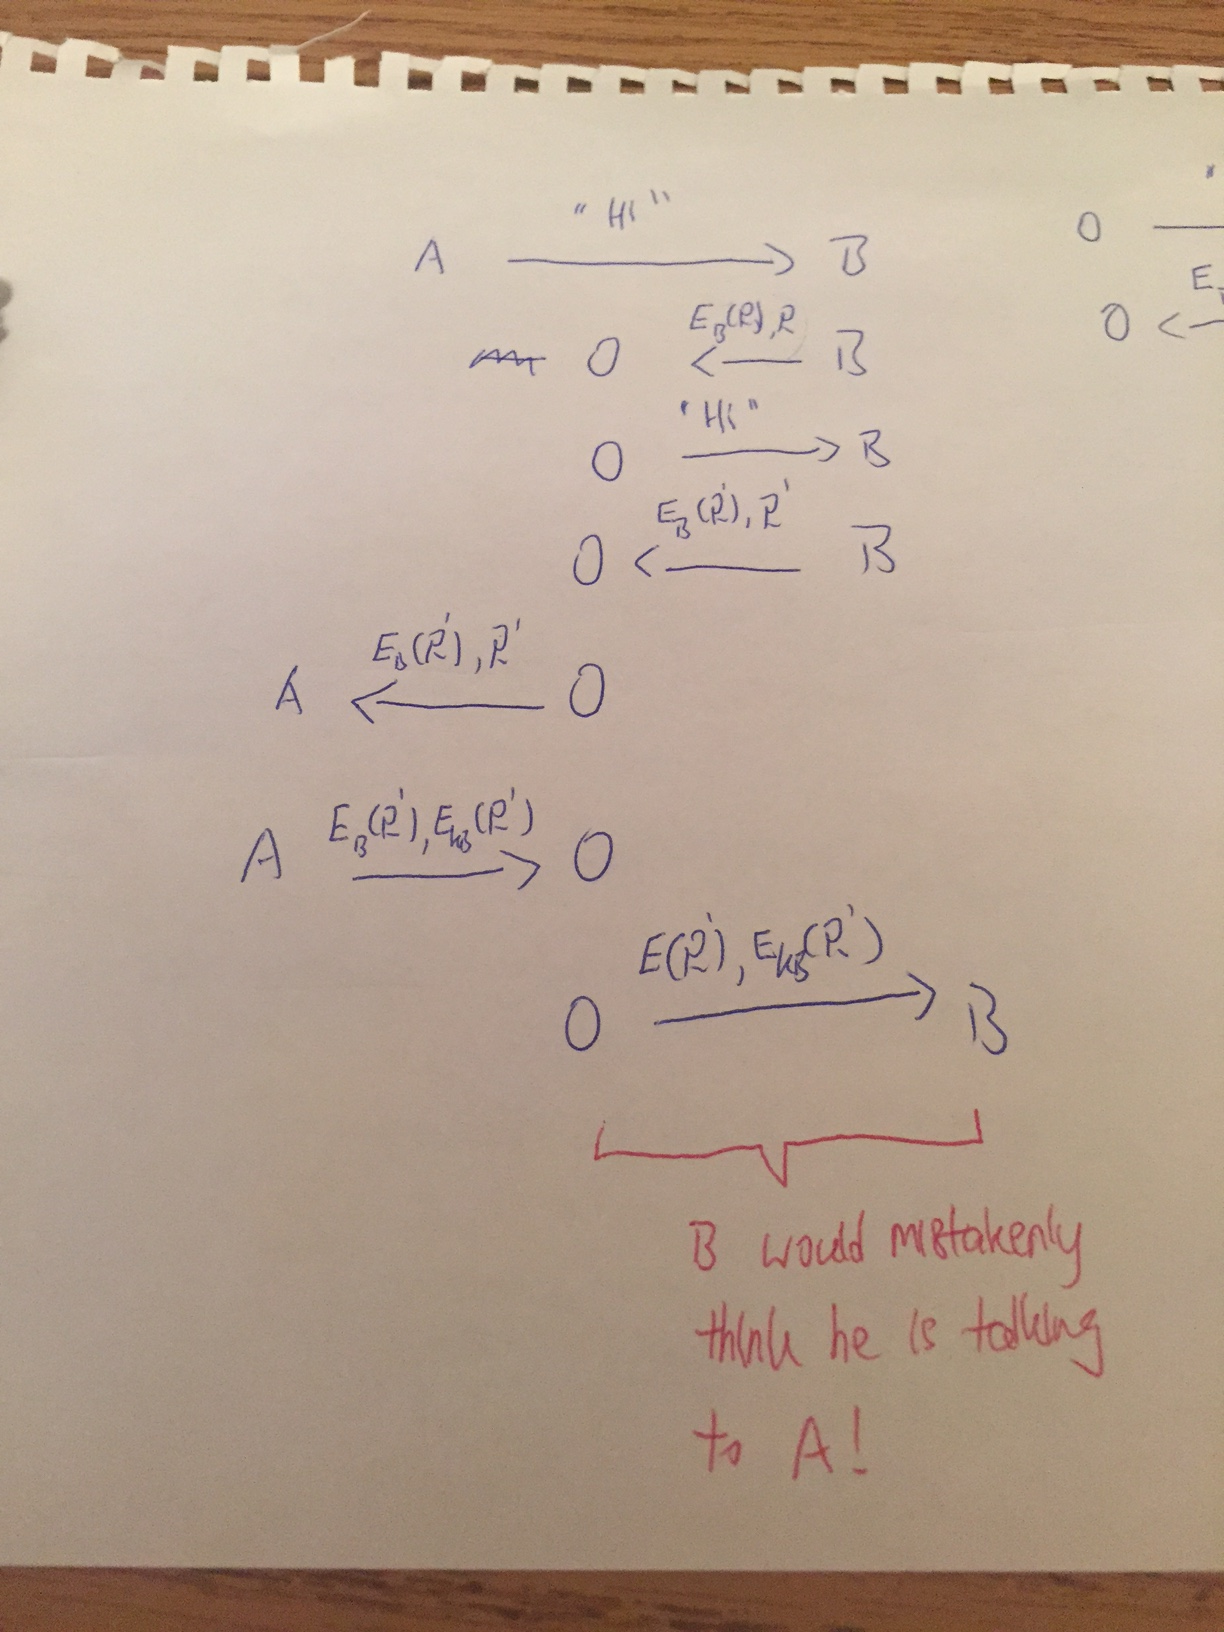 A "Hi" B
O E_B(R), R B
O "Hi" B
O E_B(R'), R' B
A E_B(R'), R' O
A E_B(R'), E_KB(R') O
O E(R'), E_KB(R') B
B would mistakenly
think he is talking
to A!
O
O E